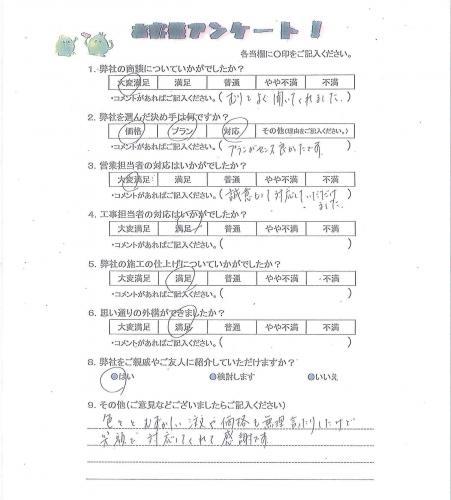 お客様アンケート！
各当欄に〇印をご記入ください。
1. 弊社の商談についていかがでしたか？
大変満足 満足 普通 やや不満 不満
・コメントがあればご記入ください。( よく聞いてくれました。 )
2. 弊社を選んだ決め手は何ですか？
価格 プラン 対応 その他(理由をご記入ください。)
・コメントがあればご記入ください。( プランがセンス良かったです )
3. 営業担当者の対応はいかがでしたか？
大変満足 満足 普通 やや不満 不満
・コメントがあればご記入ください。( 誠意もって対応していただけ
ました。 )
4. 工事担当者の対応はいかがでしたか？
大変満足 満足 普通 やや不満 不満
・コメントがあればご記入ください。( )
5. 弊社の施工の仕上げについていかがでしたか？
大変満足 満足 普通 やや不満 不満
・コメントがあればご記入ください。( )
6. 思い通りの外構ができましたか？
大変満足 満足 普通 やや不満 不満
・コメントがあればご記入ください。( )
8. 弊社をご親戚やご友人に紹介していただけますか？
はい 検討します いいえ
9. その他(ご意見などございましたらご記入ください)
色々とむずかしい注文や価格も無理言ったりしたけど
笑顔で対応してくれて感謝です